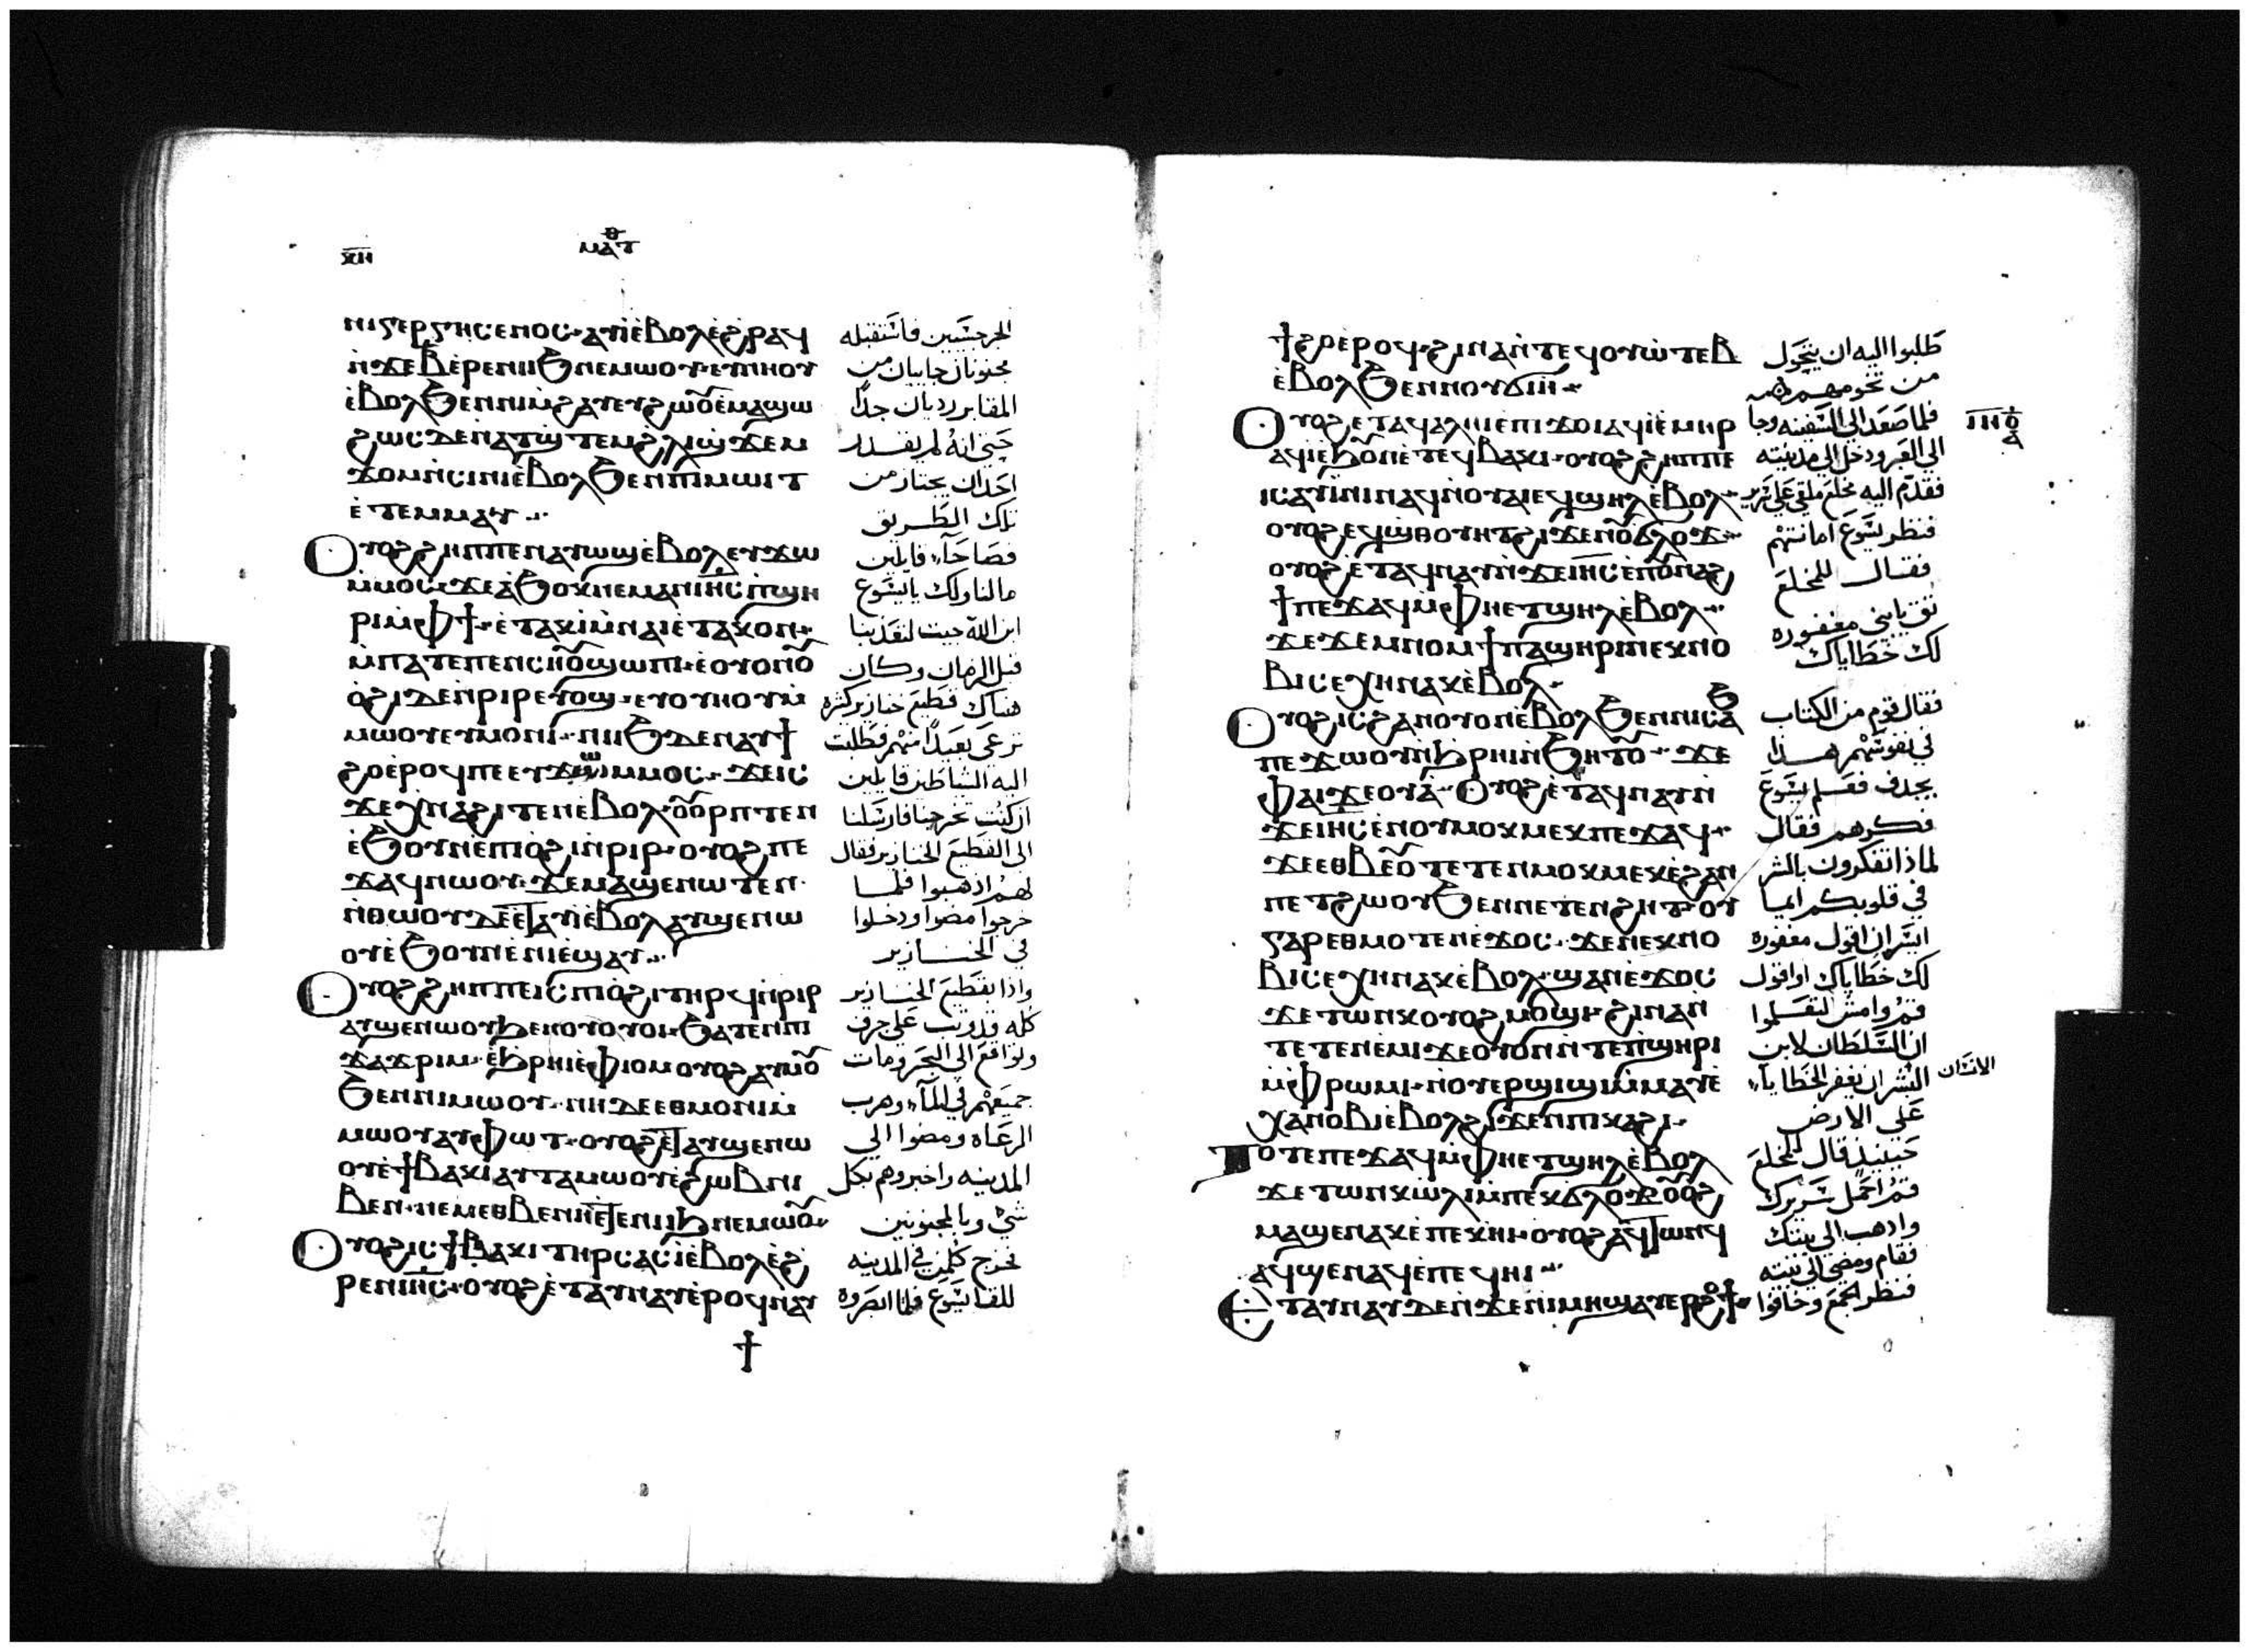 ⲙⲁⲧⲑ
ⲛⲓⲅⲉⲣⲅⲏⲥⲉⲛⲟⲥ ⲁⲩⲓ̀ⲉⲃⲟⲗ ⲉ̀ϩⲣⲁϥ
ⲛ̀ϫⲉⲃ̅ ⲉ̀ⲣⲉ ⲛⲓⲓϧ ⲛⲉⲙⲱⲟⲩ ⲉⲩⲛⲏⲟⲩ
ⲉ̀ⲃⲟⲗϧⲉⲛ ⲛⲓⲙ̀ϩⲁⲩ ⲉⲩϩⲱⲟⲩ ⲉ̀ⲙⲁϣⲱ
ϩⲱⲥⲇⲉ ⲛ̀ⲁⲧϣ̀ⲧⲉⲙϩⲗⲓ ϣ̀ϫⲉⲙ
ϫⲟⲙ ⲛ̀ⲥⲓⲛⲓ ⲉ̀ⲃⲟⲗϧⲉⲛ ⲡⲓⲙⲱⲓⲧ
ⲉ̀ⲧⲉⲙⲙⲁⲩ
ⲟⲩⲟϩ ϩⲏⲡⲡⲉ ⲛⲁⲩⲱϣ ⲉ̀ⲃⲟⲗ ⲉⲩϫⲱ
ⲙ̀ⲙⲟⲥ ϫⲉ ⲁ̀ϧⲟⲕ ⲛⲉⲙⲁⲛ ⲓⲏ̅ⲥ ⲡ̀ϣⲏ
ⲣⲓ ⲙ̀ⲫϯ ⲉ̀ⲧⲁⲕⲓ̀ ⲙ̀ⲛⲁⲓ ⲉ̀ⲧⲁⲕⲟⲛ
ⲙ̀ⲡⲁⲧⲉ ⲡⲉⲛⲥⲏⲟⲩ ϣⲱⲡⲓ ⲛⲉ ⲟⲩⲟⲛ ⲟⲩ
ⲟ̀ϩⲓ ⲇⲉ ⲛ̀ⲣⲓⲣ ⲉⲩⲟϣ ⲉⲩⲟⲩⲏⲟⲩ ⲙ̀
ⲙⲱⲟⲩ ⲉⲩⲙⲟⲛⲓ ⲛⲓⲓϧ ⲇⲉ ⲛⲁⲩϯ
ϩⲟ ⲉ̀ⲣⲟϥ ⲡⲉ ⲉⲩϫⲱ ⲙ̀ⲙⲟⲥ ϫⲉ ⲓⲥ
ϫⲉ ⲭ̀ⲛⲁϩⲓⲧⲉⲛ ⲉ̀ⲃⲟⲗ ⲟⲩⲟⲣⲡⲧⲉⲛ
ⲉ̀ϧⲟⲩⲛ ⲉ̀ⲡⲓⲟ̀ϩⲓ ⲛ̀ⲣⲓⲣ ⲟⲩⲟϩ ⲡⲉ
ϫⲁϥ ⲛⲱⲟⲩ ϫⲉ ⲙⲁϣⲉⲛⲱⲧⲉⲛ
ⲛ̀ⲑⲱⲟⲩ ⲇⲉ ⲉ̀ⲧⲁⲩⲓ̀ ⲉ̀ⲃⲟⲗ ⲁⲩϣⲉⲛⲱ
ⲟⲩ ⲉ̀ϧⲟⲩⲛ ⲉ̀ⲛⲓⲉ̀ϣⲁⲩ
ⲟⲩⲟϩ ϩⲏⲡⲡⲉ ⲓⲥ ⲡⲓⲟ̀ϩⲓ ⲧⲏⲣϥ ⲛ̀ⲣⲓⲣ
ⲁⲩϣⲉⲛⲱⲟⲩ ϧⲉⲛ ⲟⲩⲟⲩⲟⲓ ϧⲁⲧⲉⲛ ⲡⲓ
ϫⲁϫⲣⲓⲙ ⲉ̀ϧⲣⲏⲓ ⲉ̀ⲫⲓⲟⲙ ⲟⲩⲟϩ ⲁⲩⲙⲟⲩ
ϧⲉⲛ ⲛⲓⲙⲱⲟⲩ ⲛⲏ ⲇⲉ ⲉⲑⲙⲟⲛⲓ ⲙ̀
ⲙⲱⲟⲩ ⲁⲩⲫⲱⲧ ⲟⲩⲟϩ ⲉ̀ⲧⲁⲩϣⲉⲛⲱ
ⲟⲩ ⲉ̀ϯⲃⲁⲕⲓ ⲁⲩⲧⲁⲙⲱⲟⲩ ⲉ̀ϩⲱⲃ ⲛⲓ
ⲃⲉⲛ ⲛⲉⲙ ⲉⲑⲃⲉ ⲛⲏ ⲉ̀ⲧⲉ ⲛⲓⲓϧ ⲛⲉⲙⲱⲟⲩ
ⲟⲩⲟϩ ⲓⲥ ϯⲃⲁⲕⲓ ⲧⲏⲣⲥ ⲁⲥⲓ̀ ⲉ̀ⲃⲟⲗ ⲉ̀ϩ
ⲣⲉⲛ ⲓⲏ̅ⲥ ⲟⲩⲟϩ ⲉ̀ⲧⲁⲩⲛⲁⲩ ⲉ̀ⲣⲟϥ ⲛⲁⲩ
الجرجسَيين فاستقبله
مجنونان جاييان من
المقابر رديان جدًا
حَتى انهُ لم يقدر
احَد ان يجتاز من
تلك الطَريق
فصَاحَا قايلين
ما لنا ولك يا يسَوع
ابن الله جيت لتعَذبنا
قبل الزمان وكان
هناك قطيعَ خنازير كثيره
ترعَى بعَيدًا منهم فطَلبت
اليه الشياطَين قايلين
ان كنت تخرجنا فارسَلنا
الى القطَيعَ الخنازير فقال
لهمُ اذهبوا فلما
خرجوا مضوا ودخلوا
في الخنازير
واذا بقطَيعَ الخنازير
كله قد وثب عَلى جرف
وتواقعَ الى البحَر ومات
جميعَهم في المآء وهرب
الرعَاه ومضوا الى
المدينه واخبروهم بكل
شي وبالمجنونين
فخرج كلمن في المدينه
للقا يسَوع فلما ابصَروه
ϯϩⲟ ⲉ̀ⲣⲟϥ ϩⲓⲛⲁ ⲛ̀ⲧⲉϥⲟⲩⲱ̀ⲧⲉⲃ
ⲉ̀ⲃⲟⲗϧⲉⲛ ⲛⲟⲩϭⲓⲏ
ⲟⲩⲟϩ ⲉⲧⲁϥⲁⲗⲏⲓ ⲉ̀ⲡⲓϫⲟⲓ ⲁϥⲓ̀ ⲉ̀ⲙⲏⲣ
ⲁϥⲓ̀ ⲉ̀ϧⲟⲩⲛ ⲉ̀ⲧⲉϥⲃⲁⲕⲓ ⲟⲩⲟϩ ϩⲏⲡⲡⲉ
ⲓⲥ ⲁⲩⲓ̀ⲛⲓ ⲛⲁϥ ⲛ̀ⲟⲩⲁⲓ ⲉϥϣⲏⲗ ⲉ̀ⲃⲟⲗ
ⲟⲩⲟϩ ⲉϥϣⲑⲟⲩⲏⲧ ϩⲓϫⲉⲛ ⲟⲩϭⲗⲟϫ
ⲟⲩⲟϩ ⲉ̀ⲧⲁϥⲛⲁⲩ ⲛ̀ϫⲉ ⲓⲏ̅ⲥ ⲉ̀ⲡⲟⲩⲛⲁϩ
ϯ ⲡⲉϫⲁϥ ⲙ̀ⲫⲏ ⲉⲧϣⲏⲗ ⲉ̀ⲃⲟⲗ
ϫⲉ ϫⲉⲙⲛⲟⲙϯ ⲡⲁϣⲏⲣⲓ ⲛⲉⲕⲛⲟ
ⲃⲓ ⲥⲉⲭⲏ ⲛⲁⲕ ⲉ̀ⲃⲟⲗ
ⲟⲩⲟϩ ⲓⲥ ϩⲁⲛⲟⲩⲟⲛ ⲉ̀ⲃⲟⲗϧⲉⲛ ⲛⲓⲥⲁϧ
ⲡⲉϫⲱⲟⲩ ⲛ̀ϧⲣⲏⲓ ⲛ̀ϧⲏⲧⲟⲩ ϫⲉ
ⲫⲁⲓ ϫⲉⲟⲩⲁ̀ ⲟⲩⲟϩ ⲉ̀ⲧⲁϥⲛⲁⲩ ⲛ̀
ϫⲉ ⲓⲏ̅ⲥ ⲉ̀ⲛⲟⲩⲙⲟⲕⲙⲉⲕ ⲡⲉϫⲁϥ
ϫⲉ ⲉⲑⲃⲉⲟⲩ ⲧⲉⲧⲉⲛⲙⲟⲕⲙⲉⲕ ⲉ̀ϩⲁⲛ
ⲡⲉⲧϩⲱⲟⲩ ϧⲉⲛ ⲛⲉⲧⲉⲛϩⲏⲧ ⲟⲩ
ⲅⲁⲣ ⲉⲑⲙⲟⲧⲉⲛ ⲉ̀ϫⲟⲥ ϫⲉ ⲛⲉⲕⲛⲟ
ⲃⲓ ⲥⲉⲭⲏ ⲛⲁⲕ ⲉ̀ⲃⲟⲗ ϣⲁⲛ ⲉ̀ϫⲟⲥ
ϫⲉ ⲧⲱⲛⲕ ⲟⲩⲟϩ ⲙⲟϣⲓ ϩⲓⲛⲁ ⲛ̀
ⲧⲉⲧⲉⲛⲉ̀ⲙⲓ ϫⲉ ⲟⲩⲟⲛ ⲛ̀ⲧⲉ ⲡ̀ϣⲏⲣⲓ
ⲙ̀ⲫⲣⲱⲙⲓ ⲛ̀ⲟⲩⲉⲣϣⲓϣⲓ ⲙ̀ⲙⲁⲩ ⲉ̀
ⲭⲁⲛⲟⲃⲓ ⲉ̀ⲃⲟⲗ ϩⲓϫⲉⲛ ⲡⲓⲕⲁϩⲓ
ⲧⲟⲧⲉ ⲡⲉϫⲁϥ ⲙ̀ⲫⲏ ⲉⲧϣⲏⲗ ⲉ̀ⲃⲟⲗ
ϫⲉ ⲧⲱⲛⲕ ⲱ̀ⲗⲓ ⲙ̀ⲡⲉⲕϭⲗⲟϫ ⲟⲩⲟϩ
ⲙⲁϣⲉⲛⲁⲕ ⲉ̀ⲡⲉⲕⲏⲓ ⲟⲩⲟϩ ⲁϥⲧⲱⲛϥ
ⲁϥϣⲉⲛⲁϥ ⲉ̀ⲡⲉϥⲏⲓ
ⲉⲧⲁⲩⲛⲁⲩ ⲇⲉ ⲛ̀ϫⲉ ⲛⲓⲙⲏϣ ⲁⲩⲉⲣϩⲟϯ
طَلبوا اليه ان يتحَول
من تخومهم
فلما صَعَد الى السَفينه وجا
الى العَبر ودخل الى مدينته
فقدّم اليه مخلعَ ملقى عَلى سَرير
فنظر يسَوعَ امانتهم
فقال للمخلعَ
ثق يا بني مغفوره
لك خطَاياك
فقال قوم من الكتاب
في نفوسَهم هذا
يجدف فعَلم يسَوعَ
فكرهم فقال
لماذا تفكرون بالشر
في قلوبكم ايما
ايسَر ان اقول مغفوره
لك خطَاياك او اقول
قمُ وامش لتعَلموا
ان السَلطَان لابن
البشر ان يغفر الخطَايا
الانسَان
عَلى الارض
حَينيذ قال للمخلعَ
قمُ احمَل سَريرك
واذهب الى بيتك
فقام ومضى الى بيته
فنظر الجمعَ وخافوا